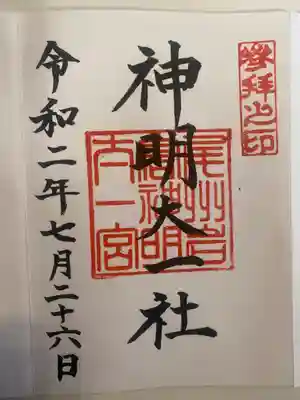 參拜之印
神明大一社
尾州岩
神明
一宮
令和二年七月二十六日